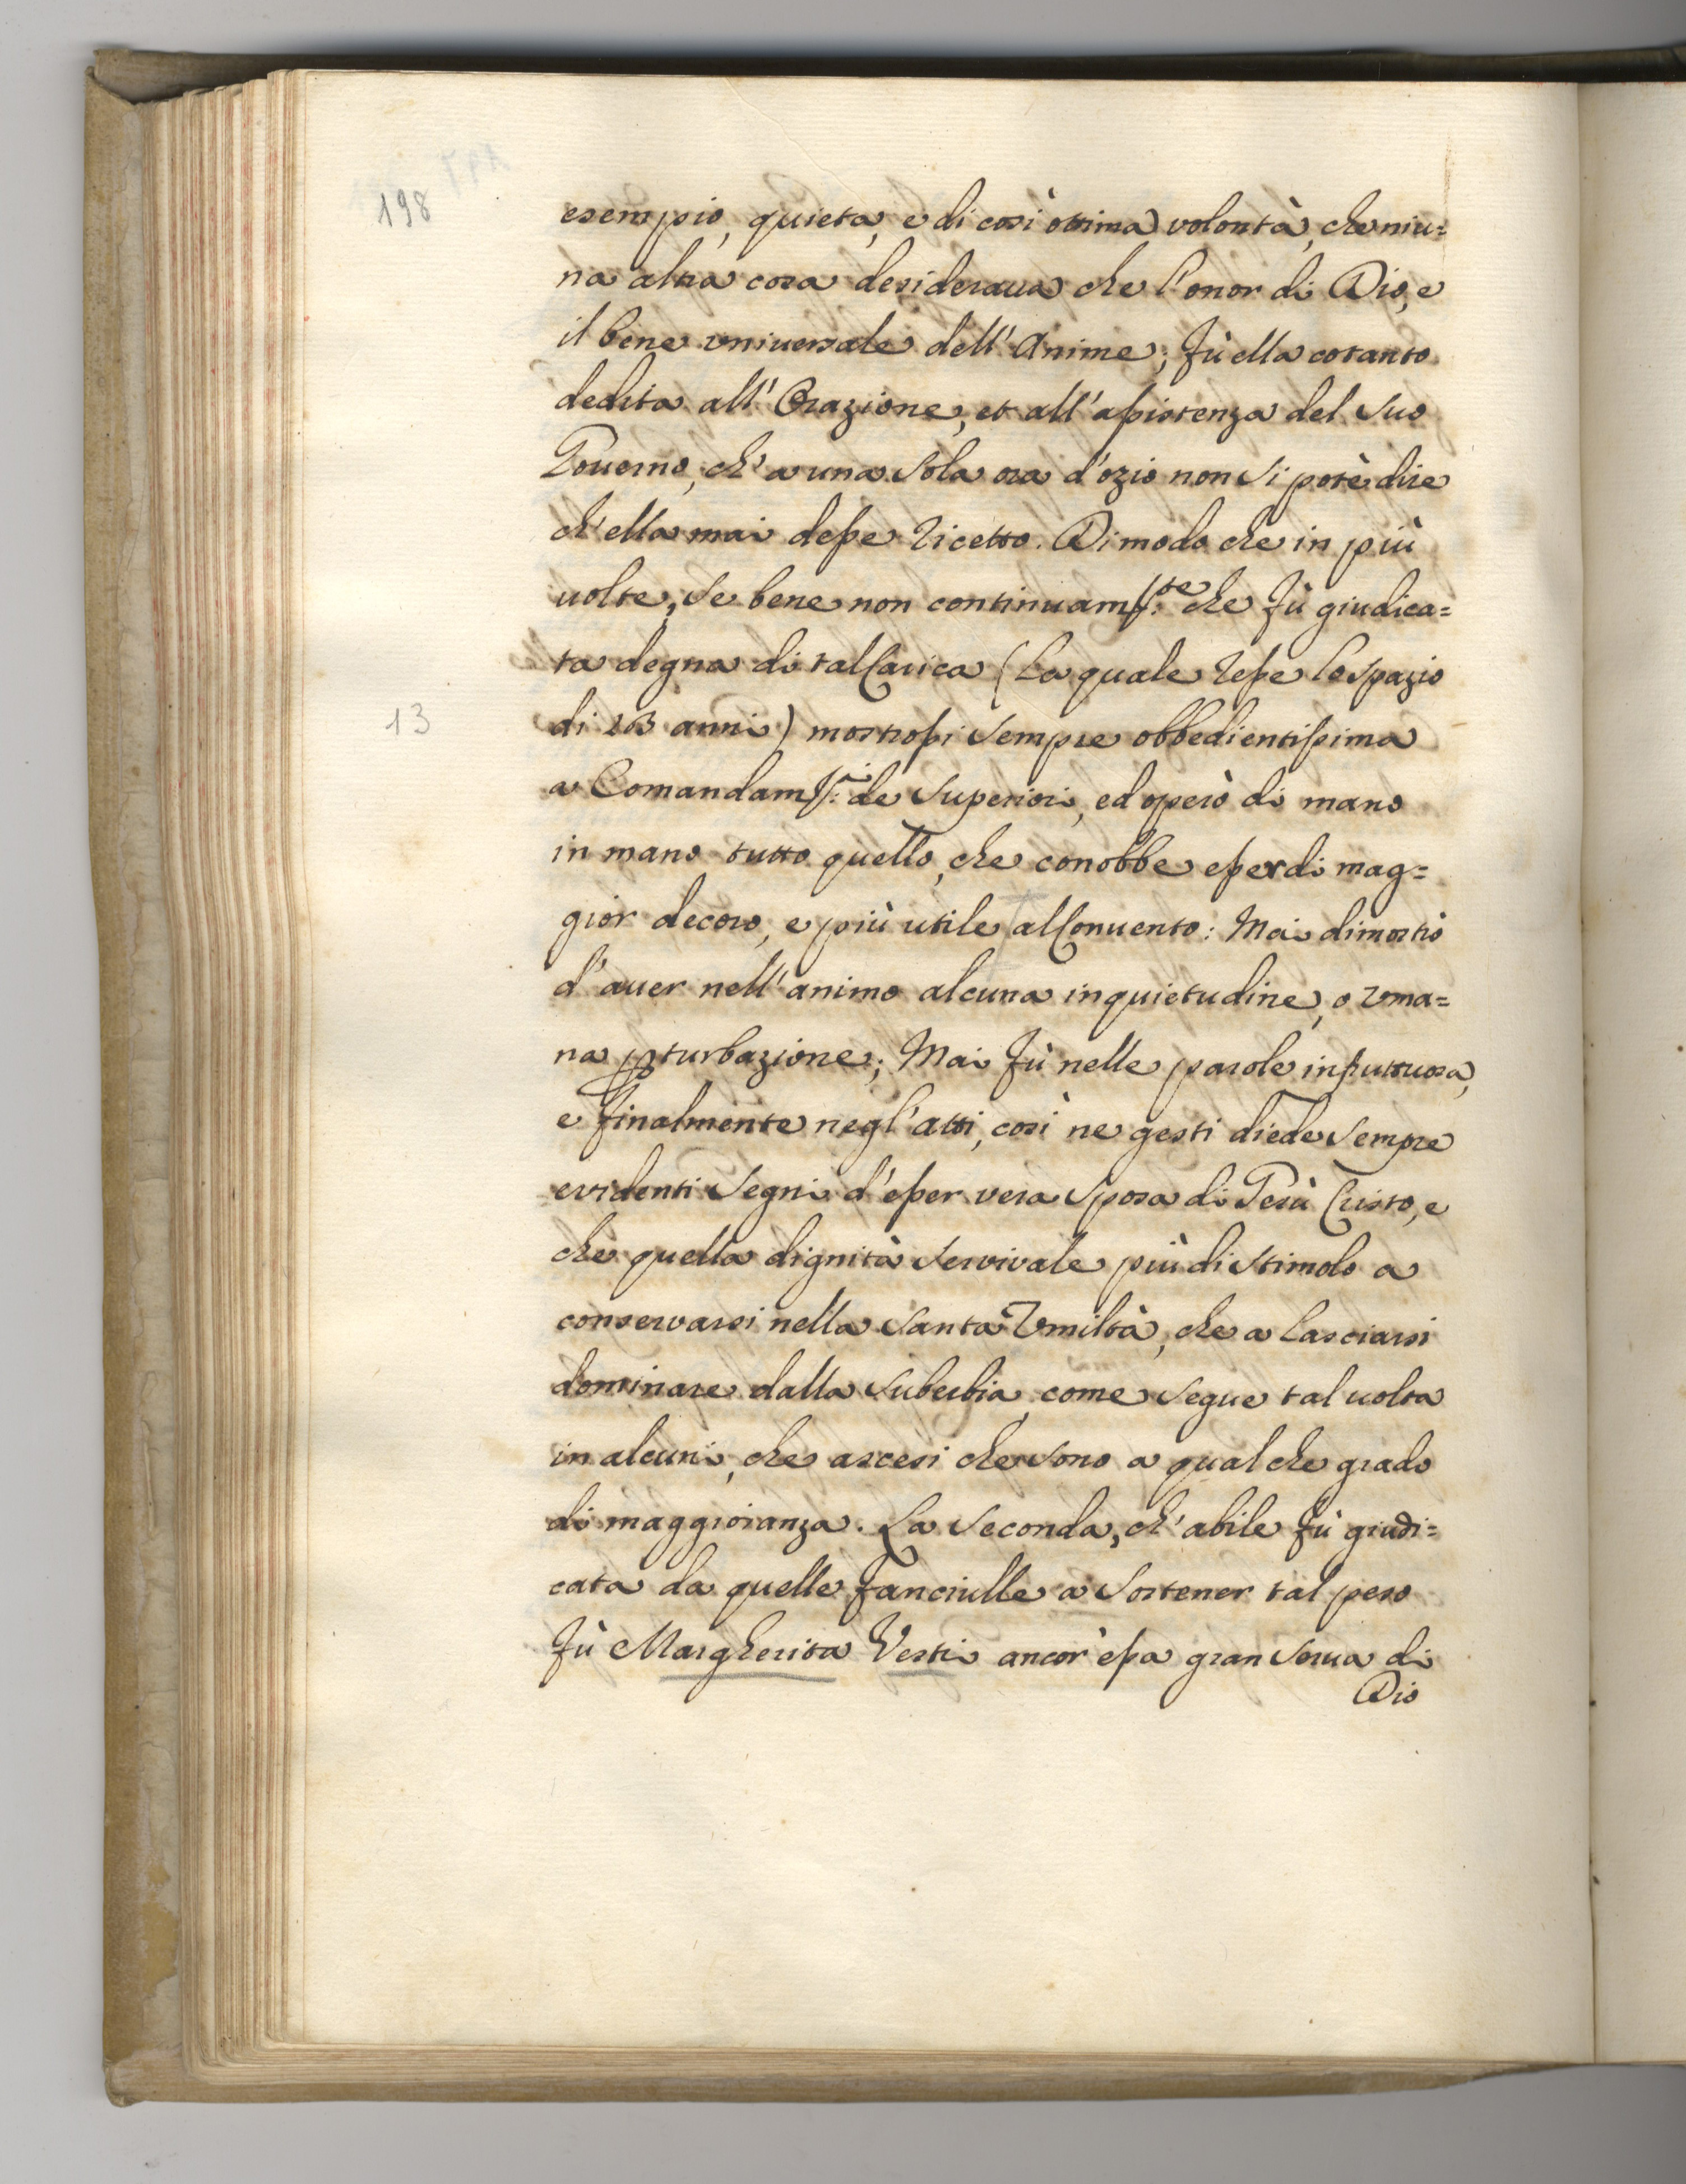 198
esempio, quieta, e di così òttima volontà, che niu=
na altra cosa desideraua che l'onor di Dio, e
il bene vniuersale dell'Anime; fù ella cotanto
dedita all'Orazione, et all'assistenza del suo
Gouerno, ch'a una sola ora d'ozio non si potè dire
ch'ella mai desse ricetto. Di modo che in più
uolte, se bene non continuam.te che fù giudica=
ta degna di tal Carica (la quale resse lo spazio
13
di 13 anni) mostrossi sempre obbedientissima
a Comandam.ti de Superiori, ed operò di mano
in mano tutto quello, che conobbe esser di mag=
gior decoro, e più utile al Conuento: Mai dimostrò
d'auer nell'animo alcuna inquietudine, o vma=
na pturbazione; Mai fù nelle parole infruttuosa,
e finalmente negl'atti, così ne gesti diede sempre
evidenti segni d'esser vera sposa di Gesù Cristo, e
che quella dignità servivale più di stimolo a
conservarsi nella santa Vmiltà, che a lasciarsi
dominare dalla suberbia, come segue tal uolta
in alcuni, che ascesi che sono a qualche grado
di maggioranza. La seconda, ch'abile fù giudi=
cata da quelle fanciulle a sostener tal peso
fù Margherita Vestri ancor'essa gran serua di
Dio